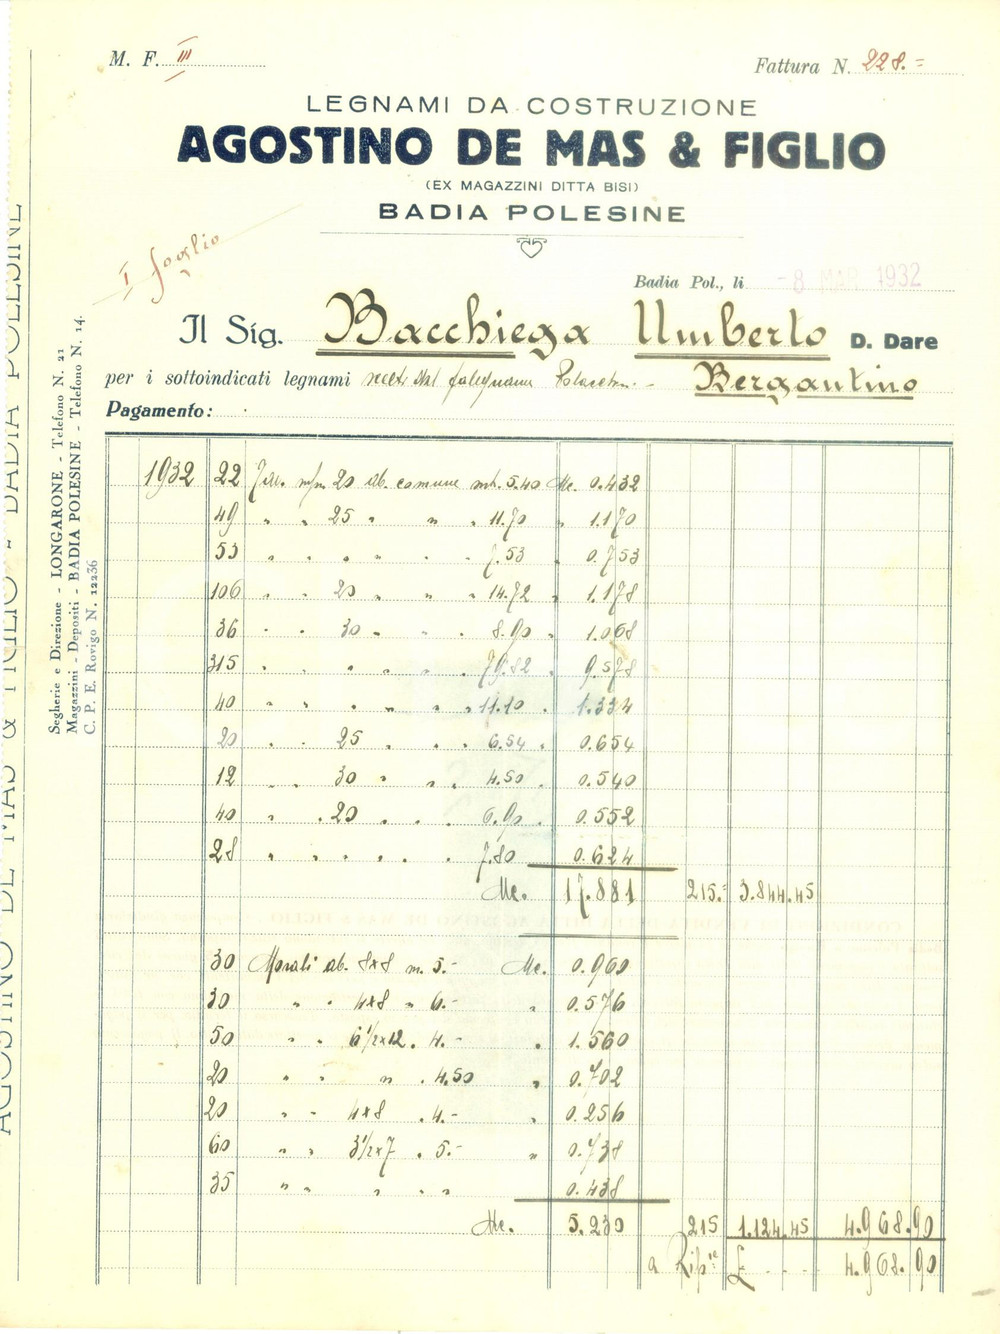 M. F. III
Fattura N. 228.=
LEGNAMI DA COSTRUZIONE
AGOSTINO DE MAS & FIGLIO
(EX MAGAZZINI DITTA BISI)
BADIA POLESINE
I foglio
Badia Pol., li -8 MAR 1932
Il Sig. Bacchiega Umberto D. Dare
per i sottoindicati legnami Bergantino
Pagamento:
Segherie e Direzione - LONGARONE - Telefono N. 21
Magazzini - Depositi - BADIA POLESINE - Telefono N. 14.
C. P. E. Rovigo N. 12236
AGOSTINO DE MAS & FIGLIO - BADIA POLESINE
1932 22 20 ab. comune 5.40 Mc. 0.432
49 " " 25 " " " 11.70 " 1.170
53 " " " " " 7.53 0.753
106 " " 20 " " " 14.72 " 1.178
36 " " 30 " " " 8.90 " 1.068
315 " " " " " 79.82 " 9.578
40 " " " " " 11.10 " 1.334
20 " " 25 " " " 6.54 " 0.654
12 " " 30 " " " 4.50 " 0.540
40 " " 20 " " " 6.90 " 0.552
28 " " " " " 7.80 0.624
Mc. 17.881 215.- 3.844.45
30 Morali ab. 8x8 m. 5.- Mc. 0.960
30 " " 4x8 " 6.- " 0.576
50 " " 6 1/2x12 . 4.- " 1.560
20 " " " . 4.50 " 0.702
20 " " 4x8 . 4.- " 0.256
60 " " 3 1/2x7 . 5.- " 0.738
35 " " " " " 0.438
Mc. 5.230 215 1.124.45 4.968.90
a Rip.re £ - - - - 4.968.90